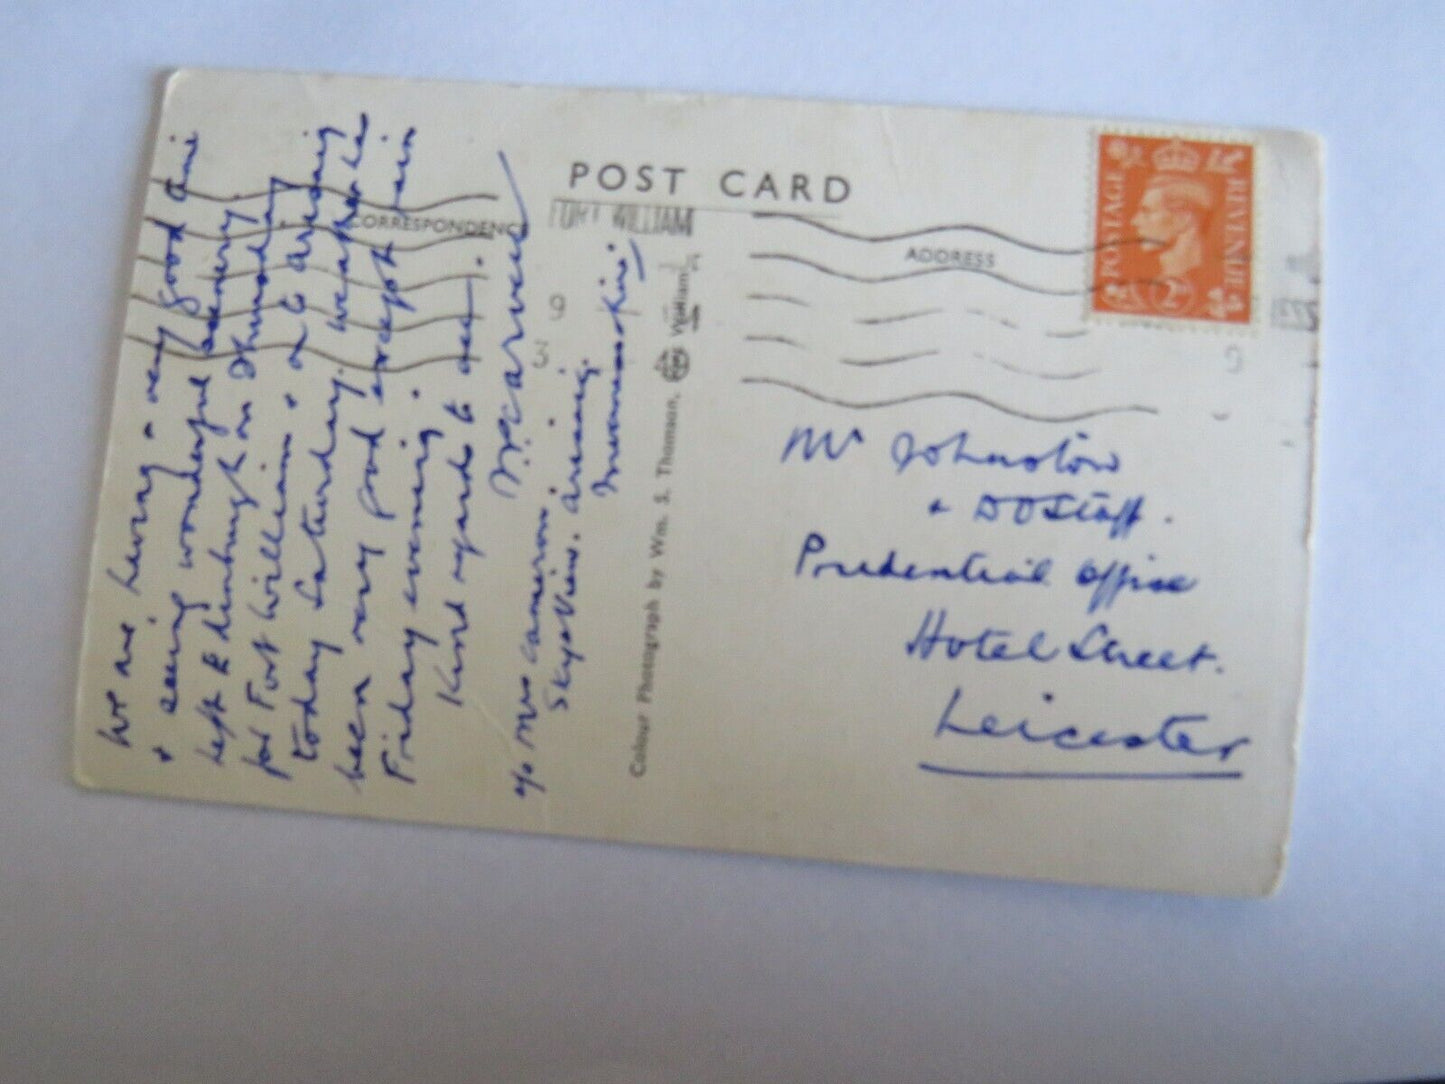 POST CARD
CORRESPONDENCE
ADDRESS
We are having a very good time
& seeing wonderful scenery.
Left Edinburgh on Thursday
for Fort William & on to Arisaig
today Saturday. Weather has
been very good except rain
Friday evening.
Kind regards to all.
c/o Mrs Cameron
Skye View. Arisaig.
Colour Photograph by Wm. S. Thomson, Fort William
FORT WILLIAM
9
3
POSTAGE
REVENUE
2D
9
Mr Johnston
& DO Staff.
Prudential Office
Hotel Street.
Leicester